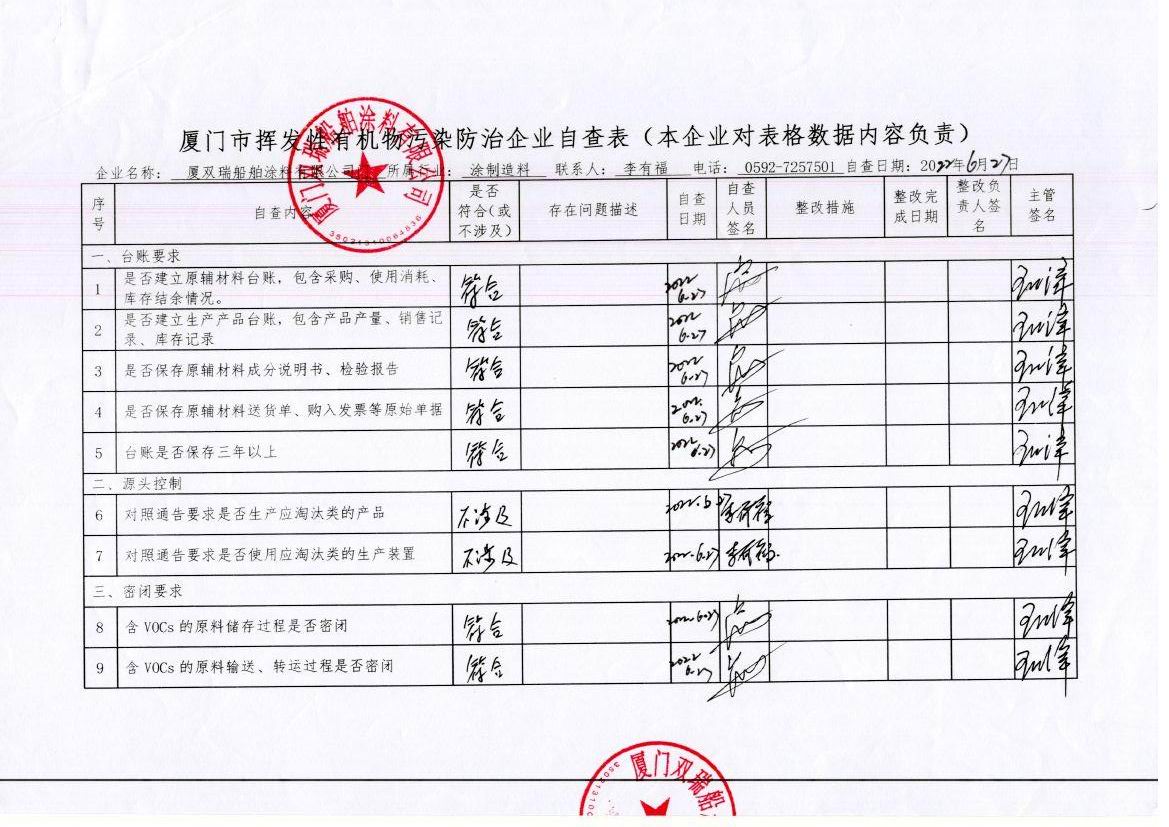 厦门市挥发性有机物污染防治企业自查表（本企业对表格数据内容负责）
企业名称： 厦双瑞船舶涂料有限公司 所属行业： 涂制造料 联系人： 李有福 电话： 0592-7257501 自查日期：2022年6月27日
序号 自查内容 是否符合(或不涉及) 存在问题描述 自查日期 自查人员签名 整改措施 整改完成日期 整改负责人签名 主管签名
一、台账要求
1 是否建立原辅材料台账，包含采购、使用消耗、 符合 2022
库存结余情况。 6.27
2 是否建立生产产品台账，包含产品产量、销售记 符合 2022
录、库存记录 6.27
3 是否保存原辅材料成分说明书、检验报告 符合 2022 6.27
4 是否保存原辅材料送货单、购入发票等原始单据 符合 2022. 6.27
5 台账是否保存三年以上 符合 2022 6.27
二、源头控制
6 对照通告要求是否生产应淘汰类的产品 不涉及 2022.6.27
7 对照通告要求是否使用应淘汰类的生产装置 不涉及 2022.6.27
三、密闭要求
8 含 VOCs 的原料储存过程是否密闭 符合 2022.6.27
9 含 VOCs 的原料输送、转运过程是否密闭 符合 2022 6.27
厦门双瑞船舶涂料有限公司
厦门双瑞船